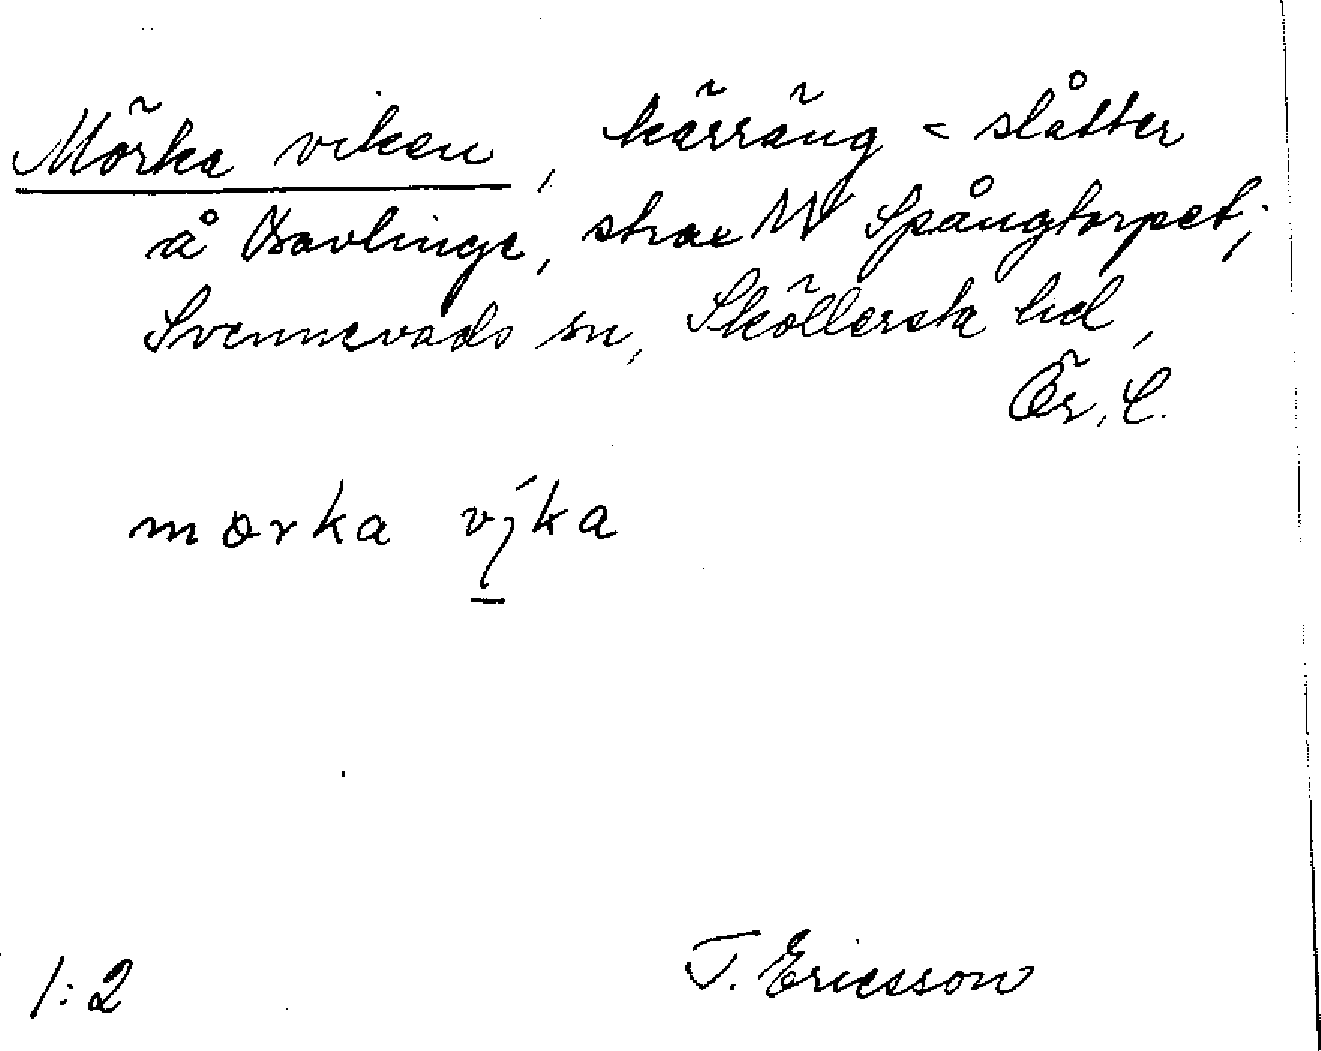 Mörka viken, kärräng = slåtter
å Bavlinge, strax W Spångtorpet;
Svennevads sn, Sköllersta hd,
Ör. L.
mörka vika
1:2
T. Ericsson